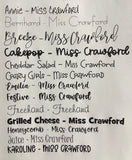 Annie - Miss Crawford
Bernhard - Miss Crawford
Breeze - Miss Crawford
Cakepop - Miss Crawford
Cheddar Salad - Miss Crawford
Crazy Girls - Miss Crawford
Emilia - Miss Crawford
Festive - Miss Crawford
Freehand - Freehand
Grilled Cheese - Miss Crawford
Honeycomb - Miss Crawford
Juice - Miss Crawford
Karoline - Miss Crawford